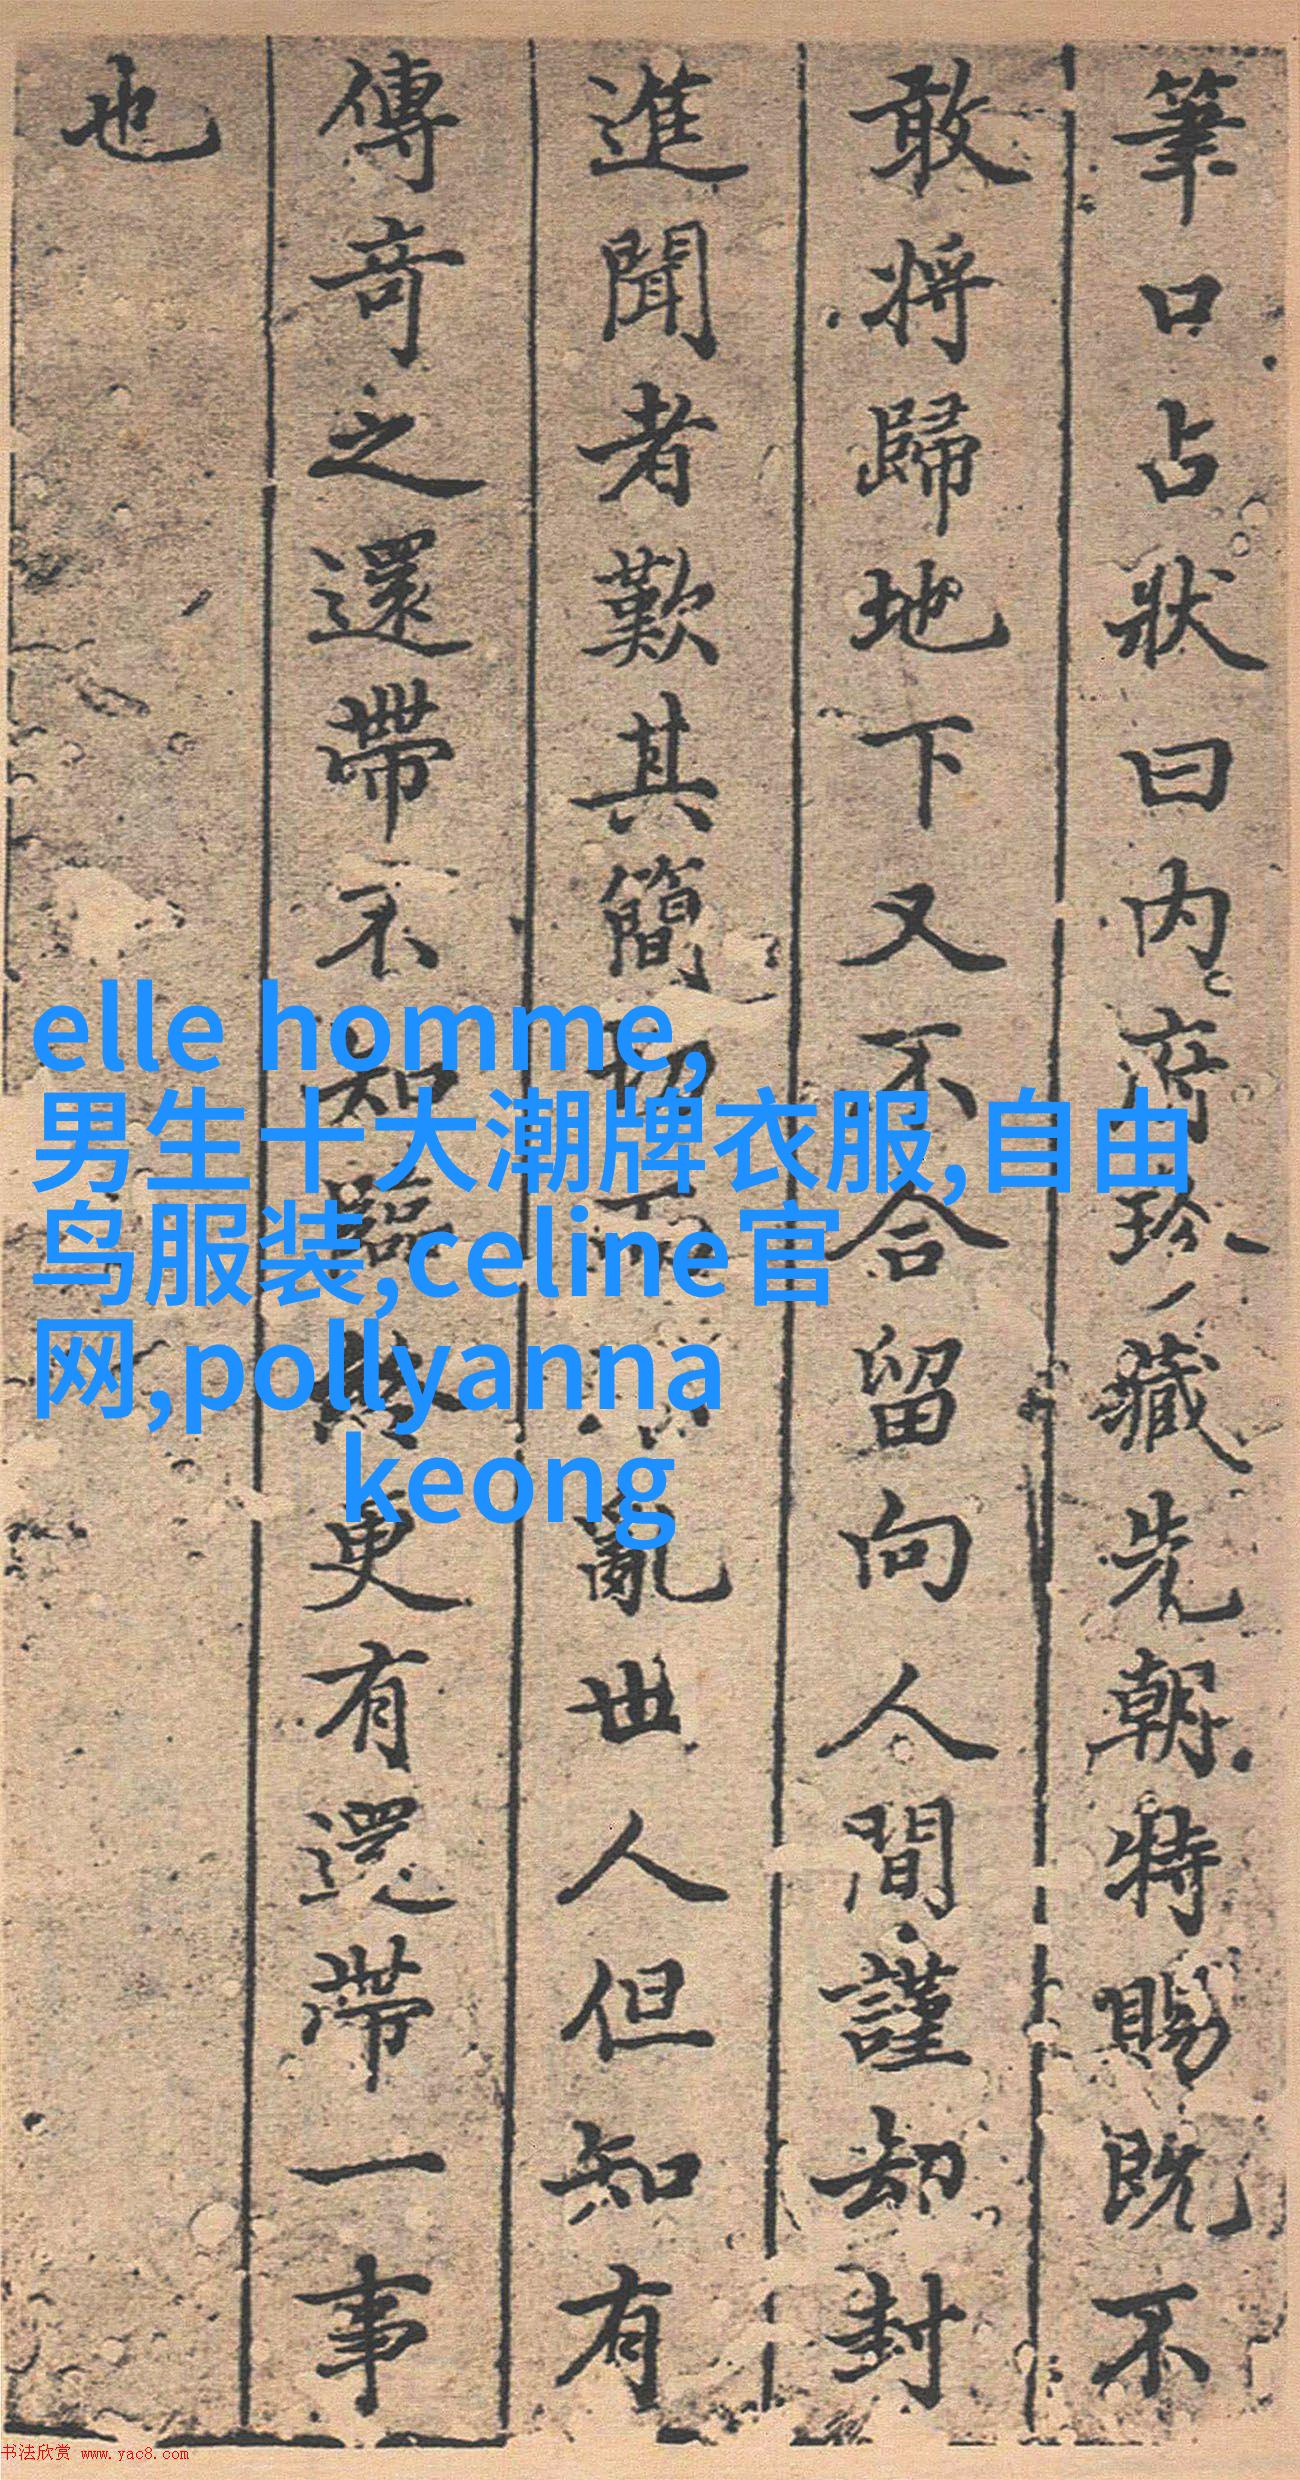 筆口占狀曰内府珍藏先朝特賜既不
敢将歸地下又不合留向人間謹却封
進聞者歎其簡切不亂世人但知有
傳奇之還帶不知臨更有還帶一事
也
elle homme,
男生十大潮牌衣服,自由
鸟服装,celine官
网,pollyanna
keong
书法欣赏 www.yac8.com